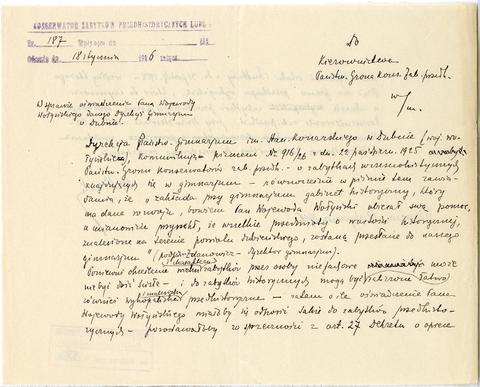 KONSERWATOR ZABYTKÓW PRZEDHISTORYCZNYCH LUBL.
Nr. 187
dnia 18 stycznia 1926
Do
Kierownictwa
Państw. Grona Kons. Zab. przedh.
w/m.
W sprawie oświadczenia Pana Wojewody
Wołyńskiego danego Dyrekcji Gimnazjum
w Dubnie.
Dyrekcja Państw. Gimnazjum im. Stan. Konarskiego w Dubnie (woj. wo-
łyńskie), komunikuje pismem Nr 916/26 z dn. 20 październ. 1925
Państw. Gronu konserwatorów zab. przedh. - o zabytkach wczesnohistorycznych
znajdujących się w gimnazjum - równocześnie w piśmie tem zawia-
damia, że "zakłada przy gimnazjum gabinet historyczny, który
ma dane rozwoju, bowiem Pan Wojewoda Wołyński obiecał swą pomoc,
a mianowicie przyrzekł, że wszelkie przedmioty o wartości historycznej,
znalezione na terenie powiatu dubieńskiego, zostaną przesłane do naszego
gimnazjum" (podpis - dyrektor gimnazjum).
Ponieważ określenie zabytków przez osoby niefachowe może
nie być dość ścisłe - i do zabytków historycznych mogą być
również wykopaliska przedhistoryczne - zatem o ile oświadczenie Pana
Wojewody Wołyńskiego miałoby się odnosić także do zabytków przedhisto-
rycznych - pozostawałoby w sprzeczności z art. 27 Dekretu o opiece